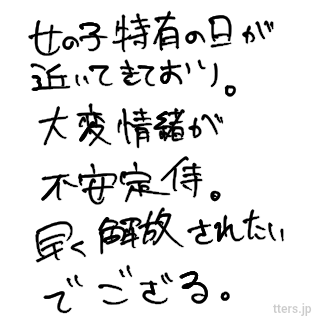 女の子特有の日が
近いてきており。
大変情緒が
不安定侍。
早く解放されたい
でござる。
tters.jp